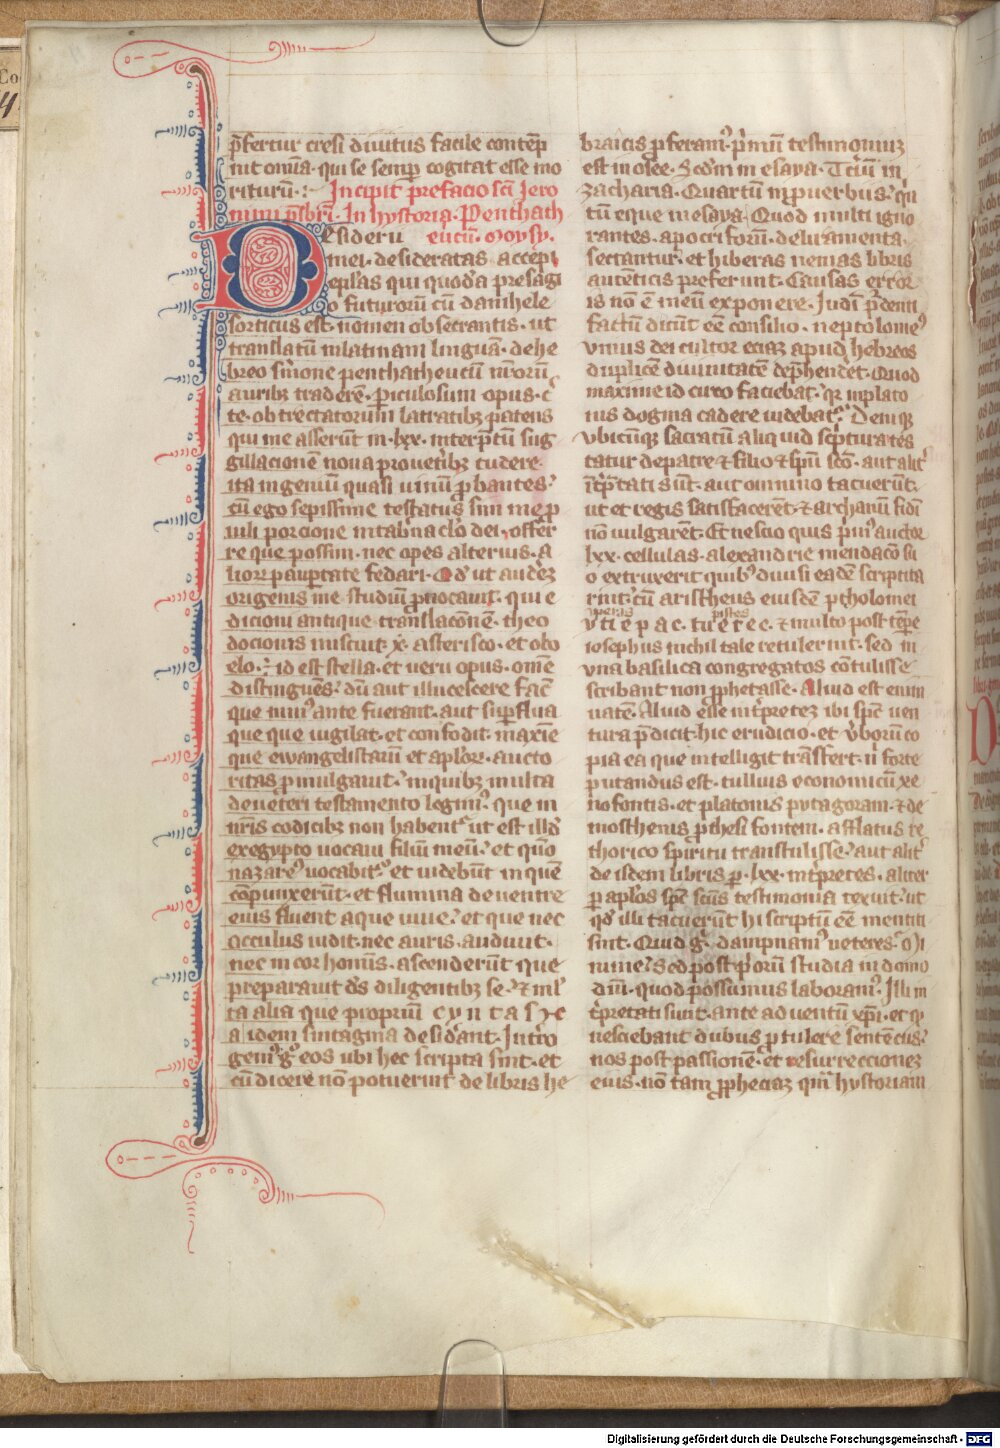 p̄fertur cresi diuitus facile contēp
nit omīa· qui se semp cogitat esse mo
riturū·:· Incipit prefacio sc̄i Jero
nimi p̄sbri· In hystoria· Penthath
esiderii eucū· moysy·
mei· desideratas accepi
epl̄as qui quodā presagi
o futurorū cū danihele
sortitus est· nomen obsecrantis· ut
translatū in latinam linguā· de he
breo s̄mone penthatheucū nr̄orū
aurib; traderē· ꝑiculosum opus· c̄
te· obtrectatorum latratib; patens
qui me asserūt in· lxx· interp̄tū sug
gillacionē noua pro ueterib; cudere·
ita ingeniū quasi uinū ꝓbantes·
cū ego sepissime testatus sim me ꝓ
uili porcione in tab̄naclo dei· offer
re que possim· nec opes alterius· a
lior paup̄tate fedari· Qd̄ ut audēz
origenis me studiū ꝓuocauit· qui e
dicioni antique translaconē· theo
docionis miscuit· x· asterisco· et obo
elo·÷ id est stella· et ueru opus· ome
distinguēs· dū aut illucescere fac̄
que min9 ante fuerant· aut suꝑflua
que que iugilat· et confodit· maxīe
que ewangelistarū et aplor̄· aucto
ritas ꝓmulgauit· in quib; multa
de ueteri testamento legim9· que in
nr̄is codicib; non habent· ut est illd̄
ex egypto uocaui filiū meū· et quō
nazare9 uocabit2· et uidebūt in quē
cōpunxerūt· et flumina de uentre
eius fluent aque uiue· et que nec
occulus uidit· nec auris· audiuit·
nec in cor hominis· ascenderūt que
preparauit ds̄ diligentib; se· ⁊ ml̄
ta alia que propriū c y n t a s ⁊ c
a idem sintagma desid̄ant· Int̄ro
gem9 g° eos ubi hec scripta sint· et
cū dicere nō potuerint de libris he
braicis ꝓferam9· p̄mū testimoniuz
est in osee· Scd̄m in esaya· T̄ciū in
zacharia· Quartū in ꝓuerbiis· qī
tū eque in esaya· Quod multi igno
rantes· apocriforū· deliramenta·
sectantur· et hiberas nenias libris
autēticis preferunt· Causas error
is nō ē meū exponere· Judi p̄denti
factū dicūt eē consilio· ne ptolome9
vnius dei cultor eciaz apud hebreos
duplicē diuinitatē dep̄henderet· Quod
maxime id circo faciebat· qr in plato
nis dogma cadere uidebāt· Deniq;
vbicūq; sacratū aliquid sc̄ptura tes
tatur de patre ⁊ filio ⁊ sp̄ū sc̄o· aut alit̄
īt̄p̄tati sūt· aut omnino tacuerūt·
ut et regis satisfacerent· ⁊ archanū fidi
nō uulgarēt· Et nescio quis p̄m9 auctor
lxx· cellulas· alexandrie mendaco su
o extruxerit quib9 diuisi eadē scriptita
rint· cū aristheus eiusdē ptholomei
yperis pistes
v t i e p a c· t u e r e c· ⁊ multo post tp̄e
iosephus nichil tale retulerint· sed in
vna basilica congregatos cōtulisse
scribant non ꝓphetasse· Aliud est enim
uatē· Aliud esse int̄pretez ibi spc̄ uen
tura p̄dicit· hic erudicio· et v̄borū co
pia ea que intelligit trāsfert· n̄ forte
putandus est· tullius economicū xe
nofontis· et platonis pytagoram· ⁊ de
mosthenis ꝓthesi fontem· afflatus re
thorico spiritu transtulisse· aut alit̄
de isdem libris ꝑ· lxx· int̄pretes· aliter
ꝑ aplōs spc̄ sc̄us testimonia texuit· ut
qd̄ illi tacuerūt hi scriptū eē mentiti
sint· Quid g° dampnam9 ueteres· Mi
nime· Sed post p̄orū studia in domo
dn̄i· quod possumus laboram9· Illi in
t̄pretati sunt· ante aduentū xp̄i· et qd̄
nesciebant dubiis ꝓtulere sentēciis·
nos post passionē· et resurreccionez
eius· nō tam ꝓpheciaz qm̄ hystoriam
Digitalisierung gefördert durch die Deutsche Forschungsgemeinschaft - DFG